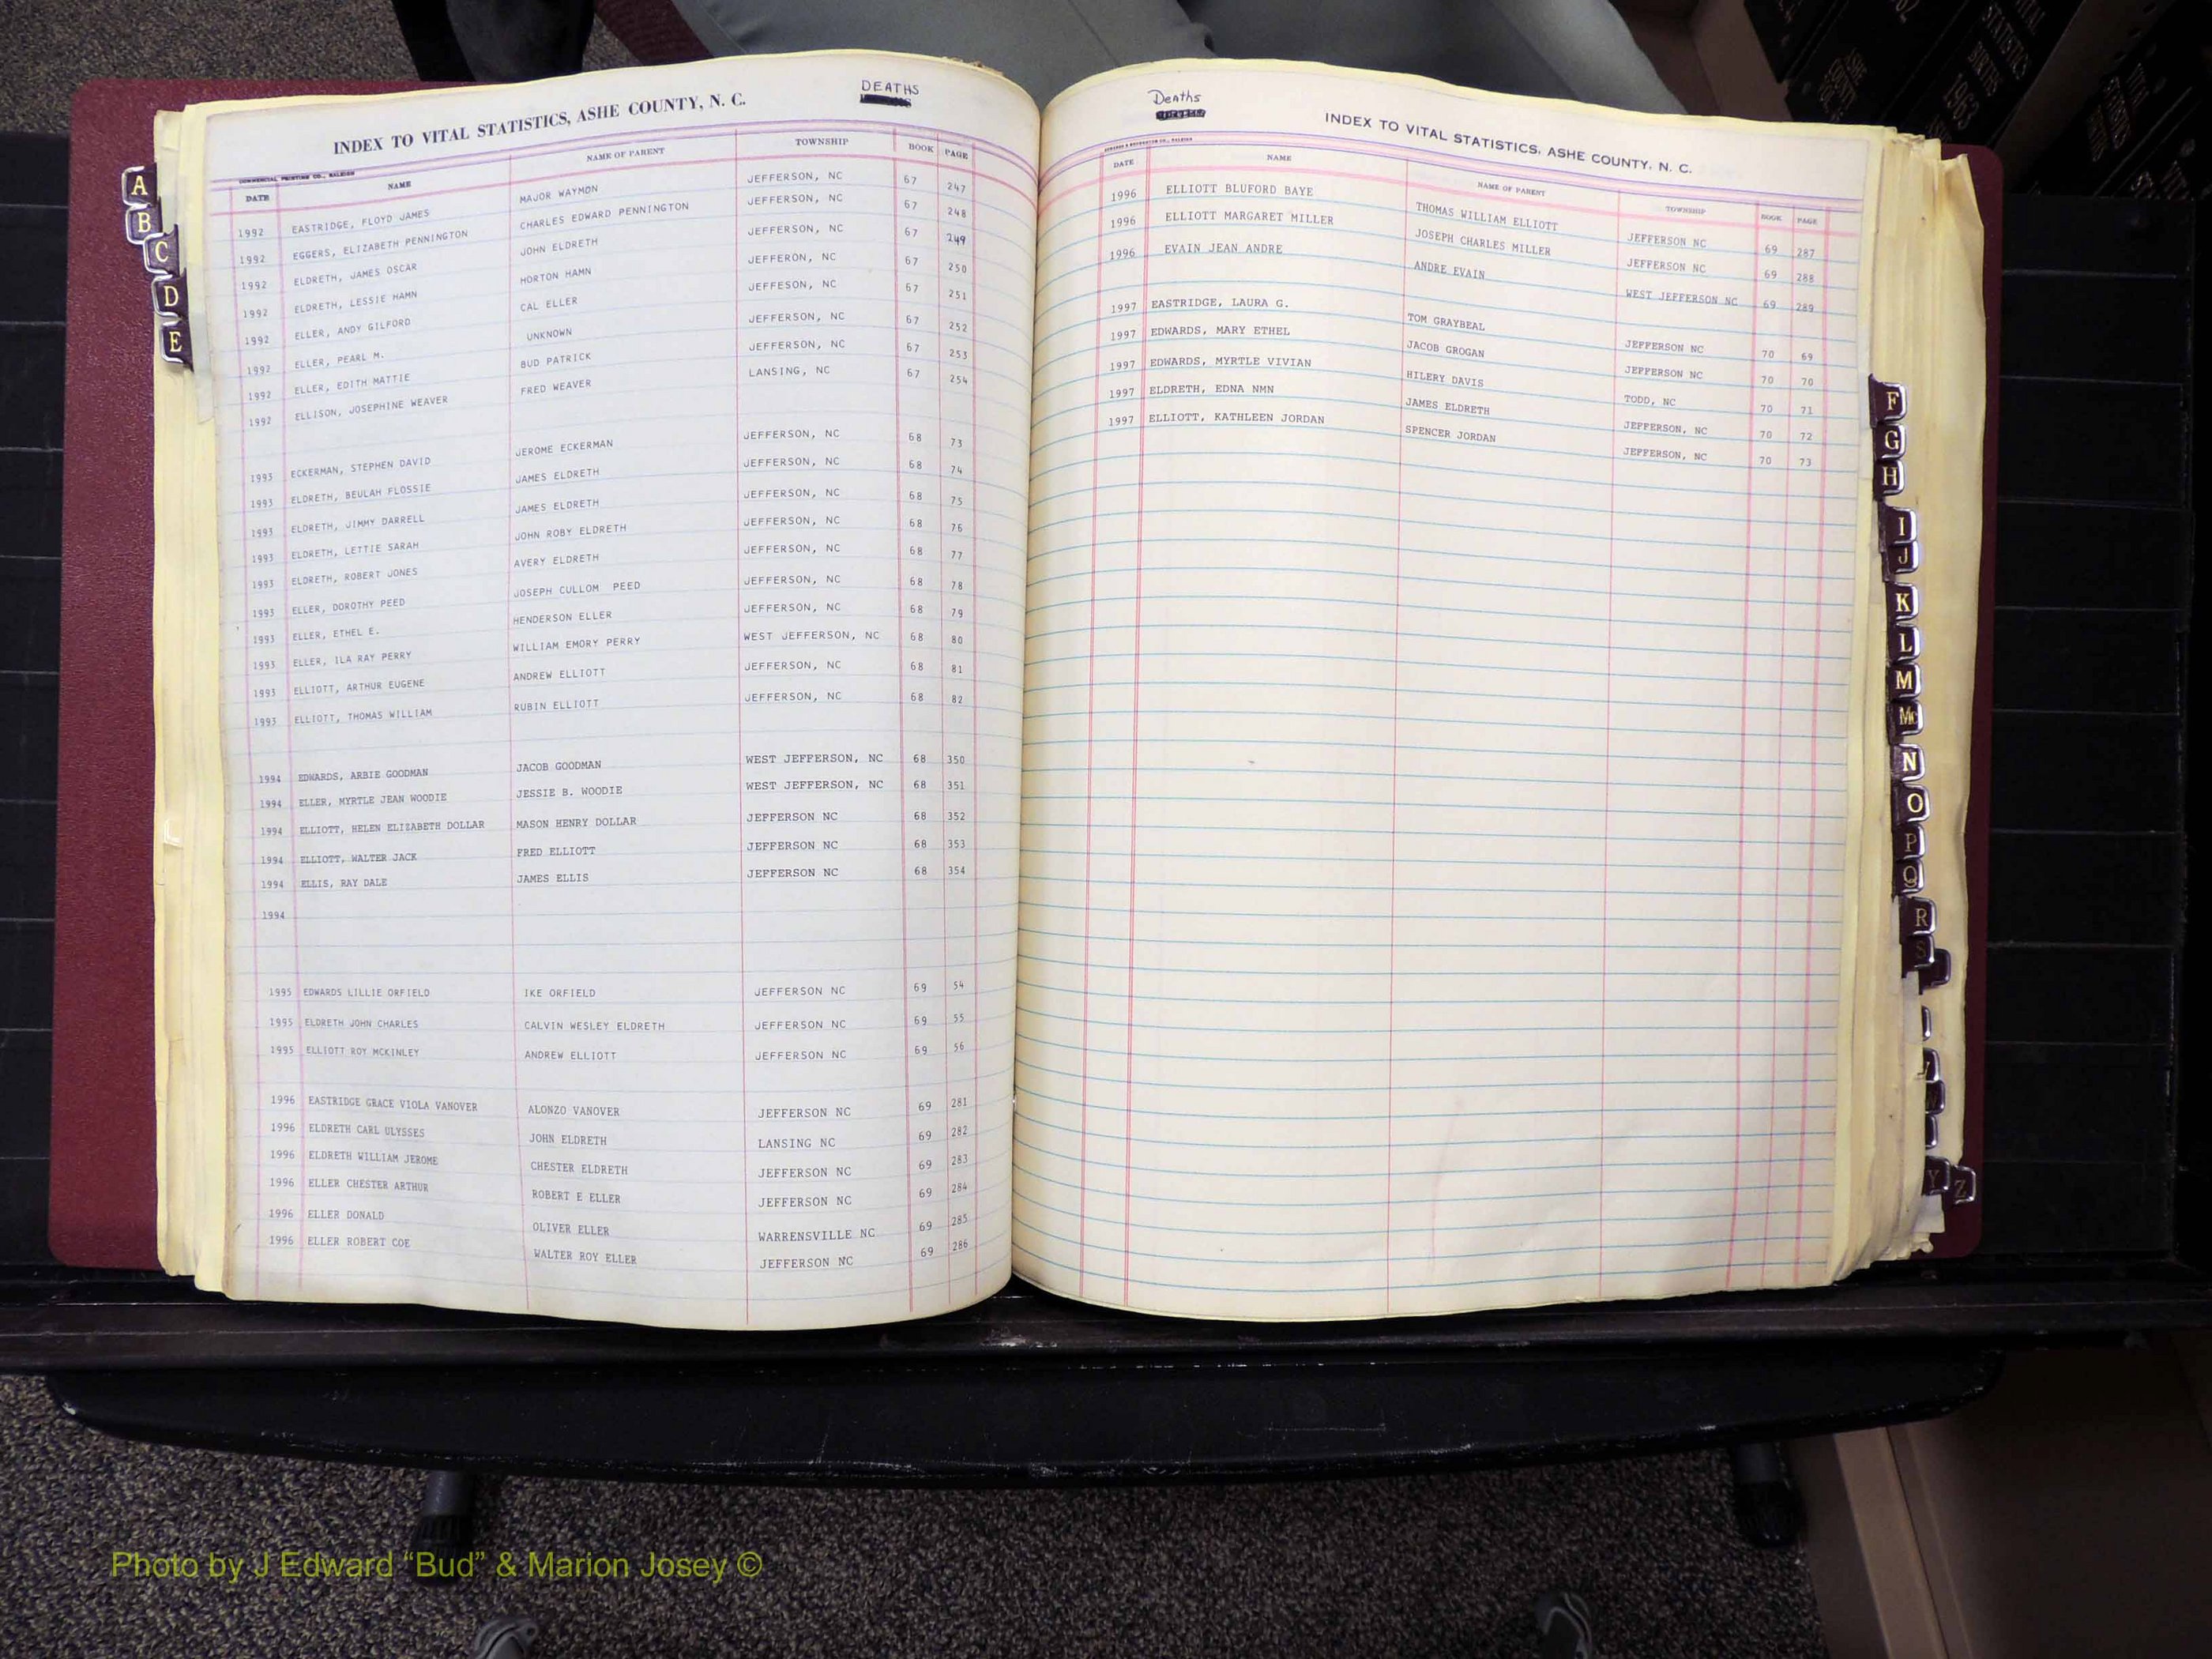 DEATHS
INDEX TO VITAL STATISTICS, ASHE COUNTY, N. C.
COMMERCIAL PRINTING CO., RALEIGH
DATE NAME NAME OF PARENT TOWNSHIP BOOK PAGE
1992 EASTRIDGE, FLOYD JAMES MAJOR WAYMON JEFFERSON, NC 67 247
1992 EGGERS, ELIZABETH PENNINGTON CHARLES EDWARD PENNINGTON JEFFERSON, NC 67 248
1992 ELDRETH, JAMES OSCAR JOHN ELDRETH JEFFERSON, NC 67 249
1992 ELDRETH, LESSIE HAMN HORTON HAMN JEFFERON, NC 67 250
1992 ELLER, ANDY GILFORD CAL ELLER JEFFESON, NC 67 251
1992 ELLER, PEARL M. UNKNOWN JEFFERSON, NC 67 252
1992 ELLER, EDITH MATTIE BUD PATRICK JEFFERSON, NC 67 253
1992 ELLISON, JOSEPHINE WEAVER FRED WEAVER LANSING, NC 67 254
1993 ECKERMAN, STEPHEN DAVID JEROME ECKERMAN JEFFERSON, NC 68 73
1993 ELDRETH, BEULAH FLOSSIE JAMES ELDRETH JEFFERSON, NC 68 74
1993 ELDRETH, JIMMY DARRELL JAMES ELDRETH JEFFERSON, NC 68 75
1993 ELDRETH, LETTIE SARAH JOHN ROBY ELDRETH JEFFERSON, NC 68 76
1993 ELDRETH, ROBERT JONES AVERY ELDRETH JEFFERSON, NC 68 77
1993 ELLER, DOROTHY PEED JOSEPH CULLOM PEED JEFFERSON, NC 68 78
1993 ELLER, ETHEL E. HENDERSON ELLER JEFFERSON, NC 68 79
1993 ELLER, ILA RAY PERRY WILLIAM EMORY PERRY WEST JEFFERSON, NC 68 80
1993 ELLIOTT, ARTHUR EUGENE ANDREW ELLIOTT JEFFERSON, NC 68 81
1993 ELLIOTT, THOMAS WILLIAM RUBIN ELLIOTT JEFFERSON, NC 68 82
1994 EDWARDS, ARBIE GOODMAN JACOB GOODMAN WEST JEFFERSON, NC 68 350
1994 ELLER, MYRTLE JEAN WOODIE JESSIE B. WOODIE WEST JEFFERSON, NC 68 351
1994 ELLIOTT, HELEN ELIZABETH DOLLAR MASON HENRY DOLLAR JEFFERSON NC 68 352
1994 ELLIOTT, WALTER JACK FRED ELLIOTT JEFFERSON NC 68 353
1994 ELLIS, RAY DALE JAMES ELLIS JEFFERSON NC 68 354
1994
1995 EDWARDS LILLIE ORFIELD IKE ORFIELD JEFFERSON NC 69 54
1995 ELDRETH JOHN CHARLES CALVIN WESLEY ELDRETH JEFFERSON NC 69 55
1995 ELLIOTT ROY MCKINLEY ANDREW ELLIOTT JEFFERSON NC 69 56
1996 EASTRIDGE GRACE VIOLA VANOVER ALONZO VANOVER JEFFERSON NC 69 281
1996 ELDRETH CARL ULYSSES JOHN ELDRETH LANSING NC 69 282
1996 ELDRETH WILLIAM JEROME CHESTER ELDRETH JEFFERSON NC 69 283
1996 ELLER CHESTER ARTHUR ROBERT E ELLER JEFFERSON NC 69 284
1996 ELLER DONALD OLIVER ELLER WARRENSVILLE NC 69 285
1996 ELLER ROBERT COE WALTER ROY ELLER JEFFERSON NC 69 286
Deaths
INDEX TO VITAL STATISTICS, ASHE COUNTY, N. C.
DATE NAME NAME OF PARENT TOWNSHIP BOOK PAGE
1996 ELLIOTT BLUFORD BAYE THOMAS WILLIAM ELLIOTT JEFFERSON NC 69 287
1996 ELLIOTT MARGARET MILLER JOSEPH CHARLES MILLER JEFFERSON NC 69 288
1996 EVAIN JEAN ANDRE ANDRE EVAIN WEST JEFFERSON NC 69 289
1997 EASTRIDGE, LAURA G. TOM GRAYBEAL JEFFERSON NC 70 69
1997 EDWARDS, MARY ETHEL JACOB GROGAN JEFFERSON NC 70 70
1997 EDWARDS, MYRTLE VIVIAN HILERY DAVIS TODD, NC 70 71
1997 ELDRETH, EDNA NMN JAMES ELDRETH JEFFERSON, NC 70 72
1997 ELLIOTT, KATHLEEN JORDAN SPENCER JORDAN JEFFERSON, NC 70 73
A
B
C
D
E
F
G
H
I
J
K
L
M
Mc
N
O
P
Q
R
S
Y
Z
VITAL STATISTICS BIRTHS 1963
ASHE COUNTY
Photo by J Edward “Bud” & Marion Josey ©